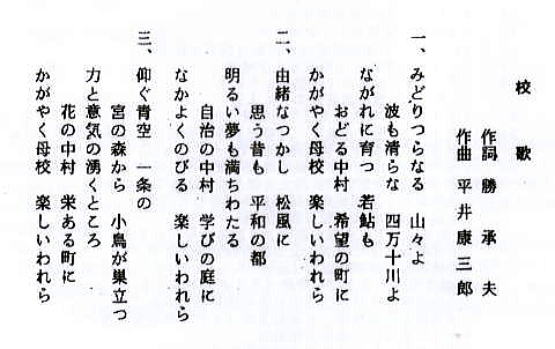 校歌
作詞 勝承夫
作曲 平井康三郎
一、みどりつらなる 山々よ
波も清らな 四万十川よ
ながれに育つ 若鮎も
おどる中村 希望の町に
かがやく母校 楽しいわれら
二、由緒なつかし 松風に
思う昔も 平和の都
明るい夢も満ちわたる
自治の中村 学びの庭に
なかよくのびる 楽しいわれら
三、仰ぐ青空 一条の
宮の森から 小鳥が巣立つ
力と意気の湧くところ
花の中村 栄ある町に
かがやく母校 楽しいわれら